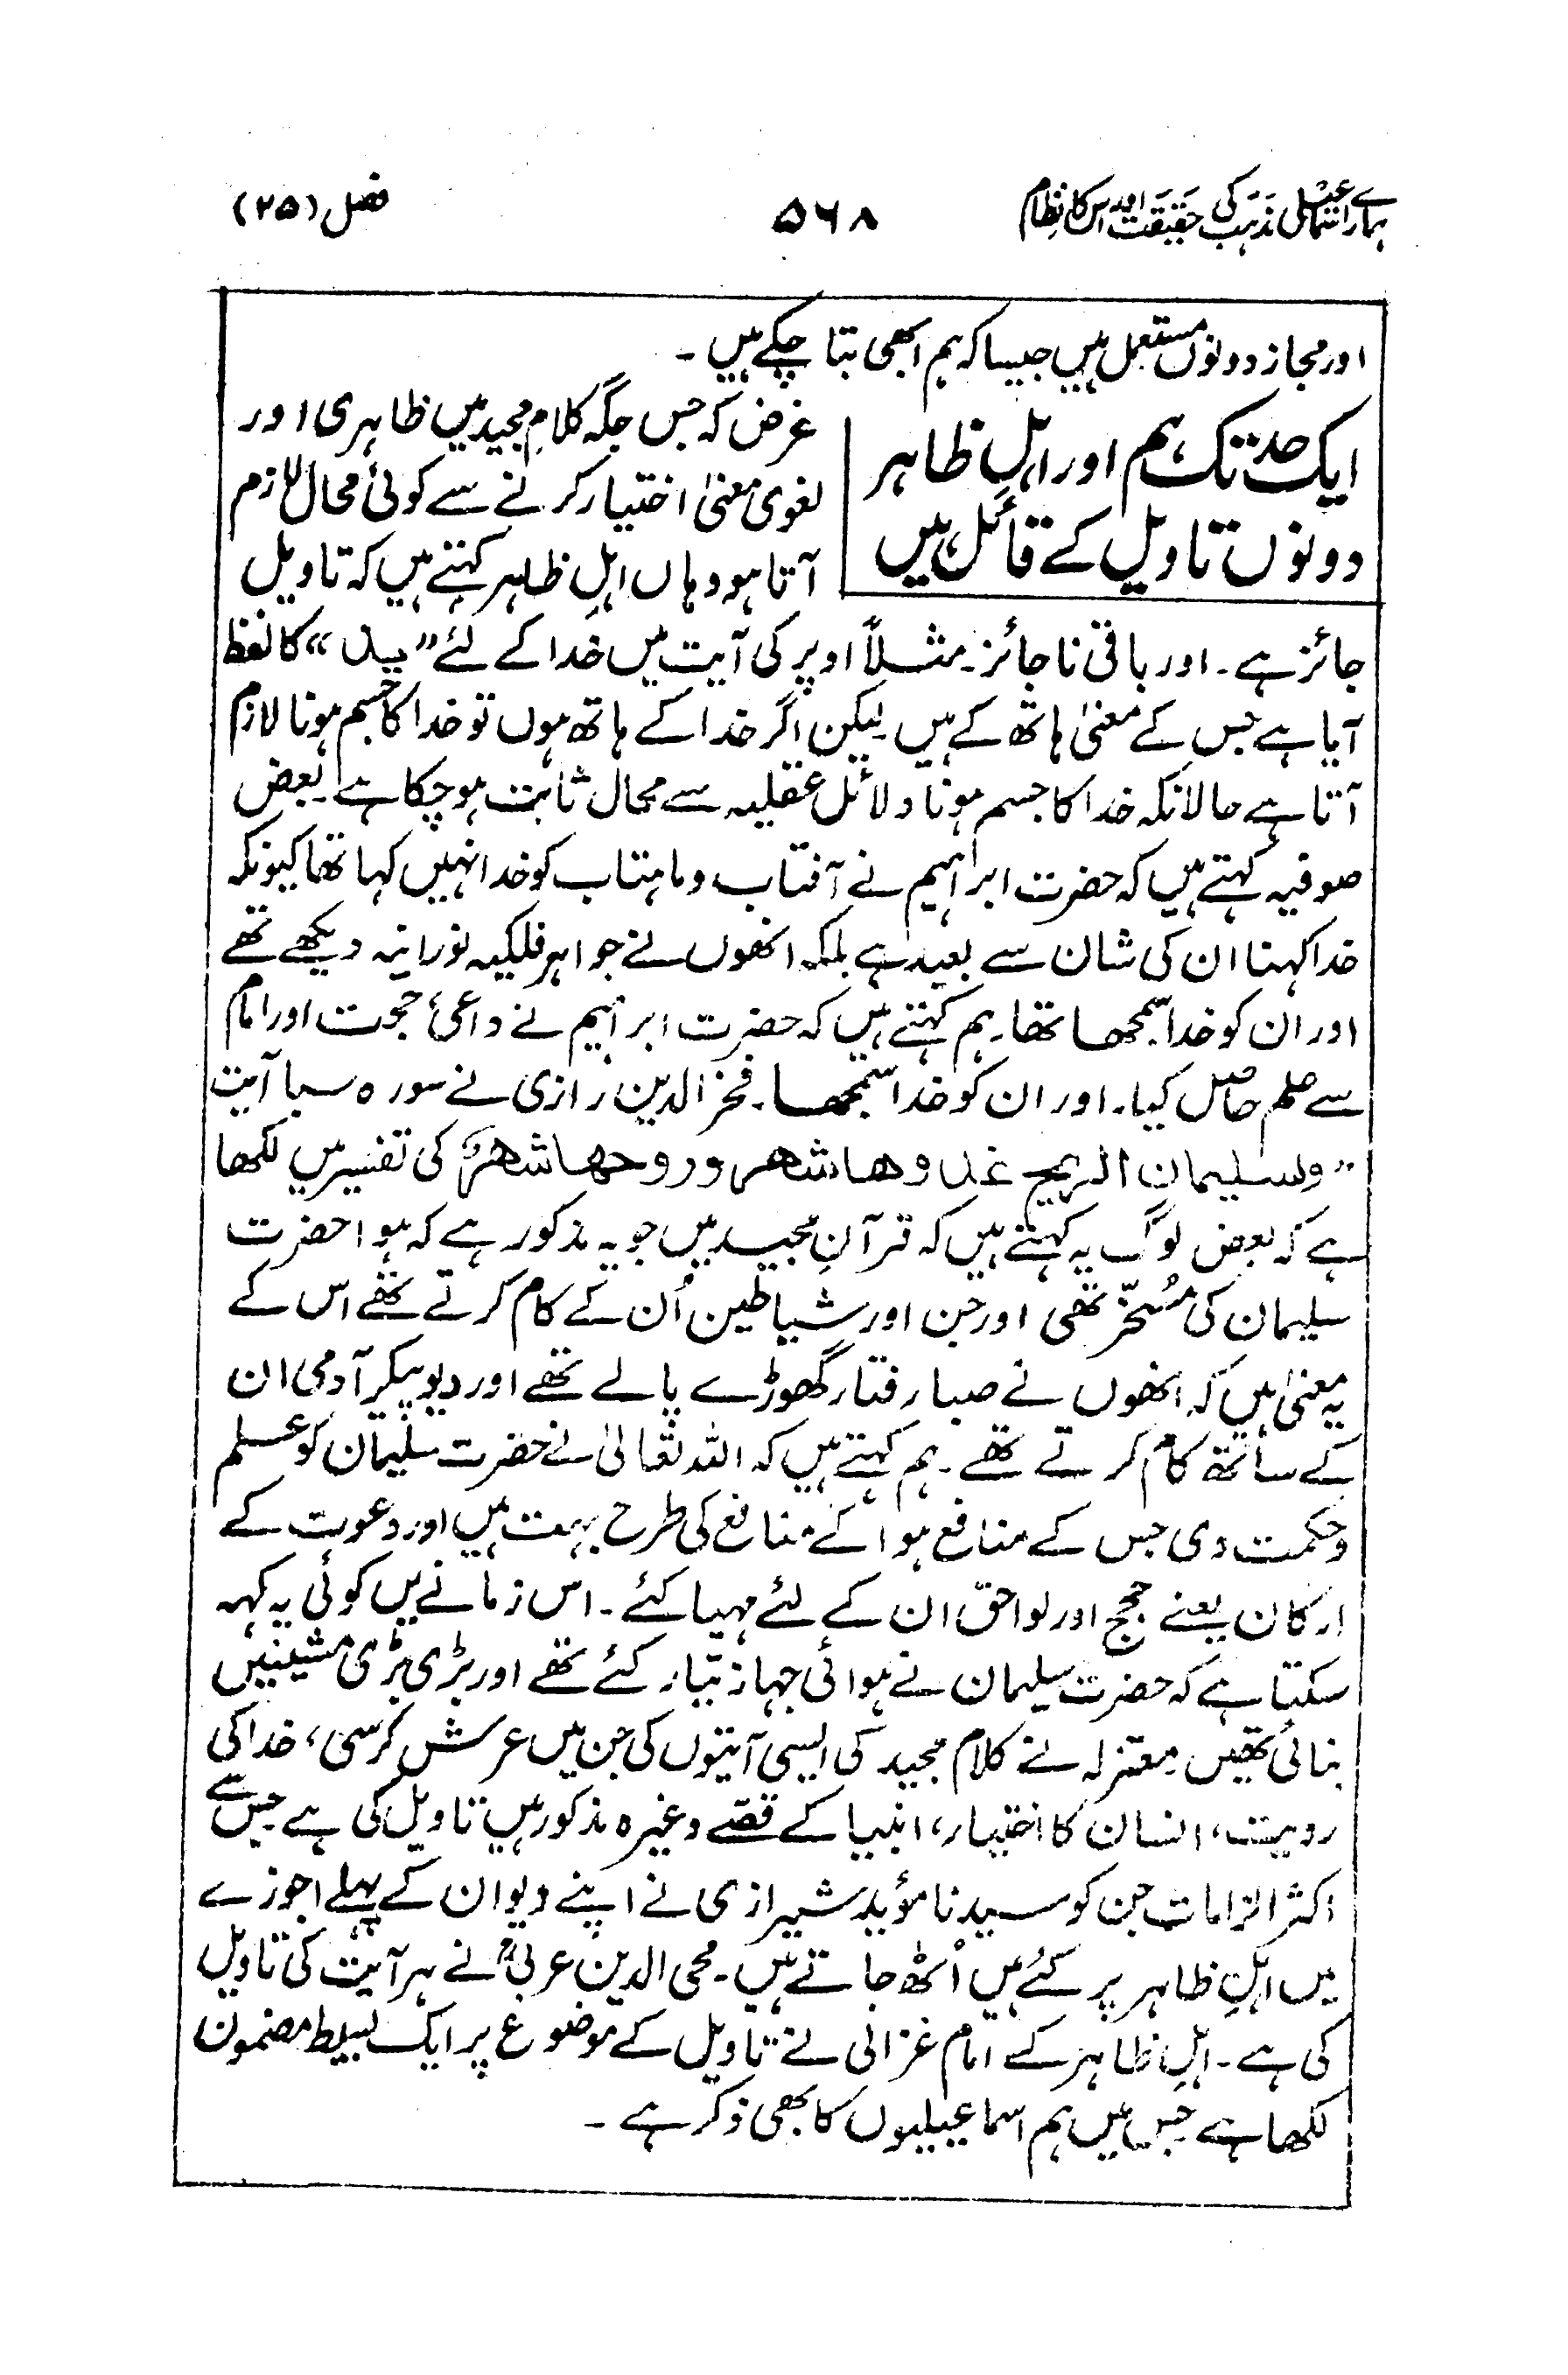 ہمارے اسماعیلی مذہب کی حقیقت اور اس کا نظام
۵۶۸
فصل (۲۵)
اور مجاز دونوں مستعمل ہیں جیسا کہ ہم ابھی بتا چکے ہیں ۔
ایک حد تک ہم اور اہلِ ظاہر
دونوں تاویل کے قائل ہیں
غرض کہ جس جگہ کلامِ مجید میں ظاہری اور
لغوی معنیٰ اختیار کرنے سے کوئی محال لازم
آتا ہو وہاں اہلِ ظاہر کہتے ہیں کہ تاویل
جائز ہے ۔ اور باقی ناجائز ۔ مثلاً اوپر کی آیت میں خدا کے لئے ”ید“ کا لفظ
آیا ہے جس کے معنیٰ ہاتھ کے ہیں لیکن اگر خدا کے ہاتھ ہوں تو خدا کا جسم ہونا لازم
آتا ہے حالانکہ خدا کا جسم ہونا دلائل عقلیہ سے محال ثابت ہو چکا ہے ۔ بعض
صوفیہ کہتے ہیں کہ حضرت ابراہیم نے آفتاب و ماہتاب کو خدا نہیں کہا تھا کیونکہ
خدا کہنا ان کی شان سے بعید ہے بلکہ انھوں نے جواہر فلکیہ نورانیہ دیکھے تھے
اور ان کو خدا سمجھا تھا ۔ ہم کہتے ہیں کہ حضرت ابراہیم نے داعیٔ حجت اور امام
سے علم حاصل کیا ۔ اور ان کو خدا سمجھا ۔ فخر الدین رازی نے سورہ سبا آیت
”ولسلیمان الریح غدوھا شھر و روحھا شھر“ کی تفسیر میں لکھا
ہے کہ بعض لوگ یہ کہتے ہیں کہ قرآنِ مجید میں جو یہ مذکور ہے کہ ہوا حضرت
سلیمان کی مُسَخّر تھی اور جن اور شیاطین اُن کے کام کرتے تھے اس کے
یہ معنیٰ ہیں کہ انھوں نے صبا رفتار گھوڑے پالے تھے اور دیو پیکر آدمی ان
کے ساتھ کام کرتے تھے ۔ ہم کہتے ہیں کہ اللہ تعالیٰ نے حضرت سلیمان کو علم
و حکمت دی جس کے منافع ہوا کے منافع کی طرح بہت ہیں اور دعوت کے
ارکان یعنے حجج اور لواحق ان کے لئے مہیا کئے ۔ اس زمانے میں کوئی یہ کہہ
سکتا ہے کہ حضرت سلیمان نے ہوائی جہاز تیار کئے تھے اور بڑی بڑی مشینیں
بنائی تھیں معتزلہ نے کلام مجید کی ایسی آیتوں کی جن میں عرش کرسی، خدا کی
رویت، انسان کا اختیار، انبیا کے قصے وغیرہ مذکور ہیں تاویل کی ہے جس سے
اکثر الزامات جن کو سیدنا مؤید شیرازی نے اپنے دیوان کے پہلے اجوزے
میں اہلِ ظاہر پر کئے ہیں اُٹھ جاتے ہیں ۔ محی الدین عربیؒ نے ہر آیت کی تاویل
کی ہے ۔ اہلِ ظاہر کے امام غزالی نے تاویل کے موضوع پر ایک بسیط مضمون
لکھا ہے جس میں ہم اسماعیلیوں کا بھی ذکر ہے ۔